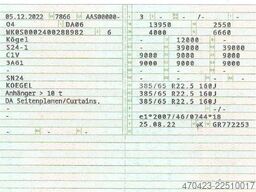 05.12.2022 7866 AAS00000- 3 - -/- -
04 DA06 13950 2550
WK0S0002400288982 6 4000 6660
Kögel - 12000 -
S24-1 - 39000 39000
C1V 9000 9000 9000 9000
3A61 9000 9000 -
-
SN24 385/65 R22.5 160J
KOEGEL 385/65 R22.5 160J
Anhänger > 10 t 385/65 R22.5 160J
DA Seitenplanen/Curtains.
-/-
e1*2007/46/0744*18
25.08.22 K GR772253
470423-22510017